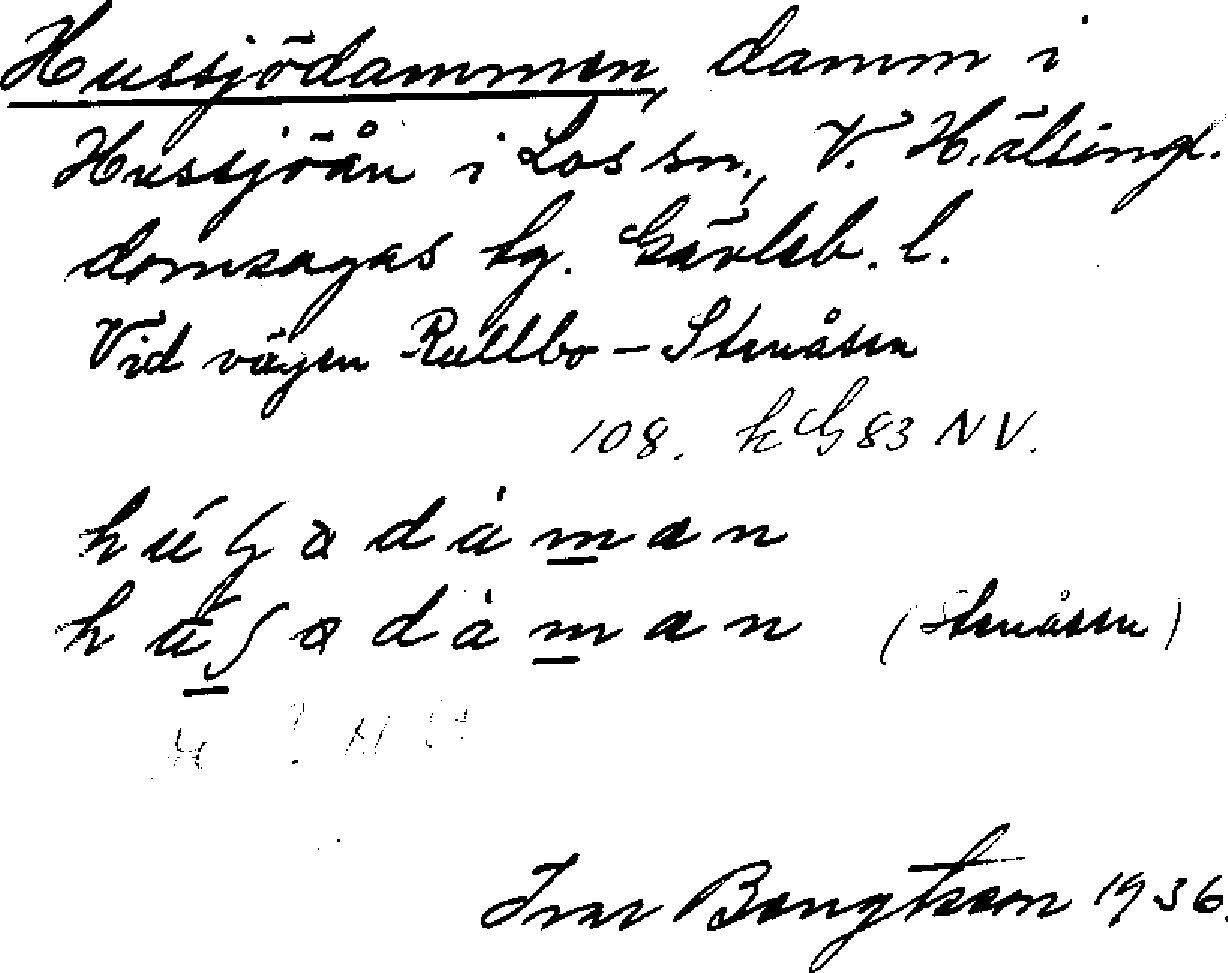 Hussjödammen, damm i
Hussjöån i Los sn, V. Hälsingl.
domsagas tg. Gävleb. l.
Vid vägen Rullbo – Stenåsen
108. kG83 NV.
(Stenåsen)
Ivar Bengtsson 1936.